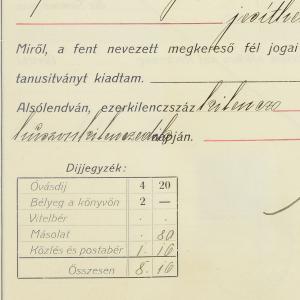 Miről, a fent nevezett megkereső fél jogai
tanusítványt kiadtam.
Alsólendván, ezerkilenczszáz kilencz
huszonkilenczedik napján.
Díjjegyzék:
Óvásdíj 4 20
Bélyeg a könyvön 2 —
Vitelbér . .
Másolat . 80
Közlés és postabér 1 16
Összesen 8 16